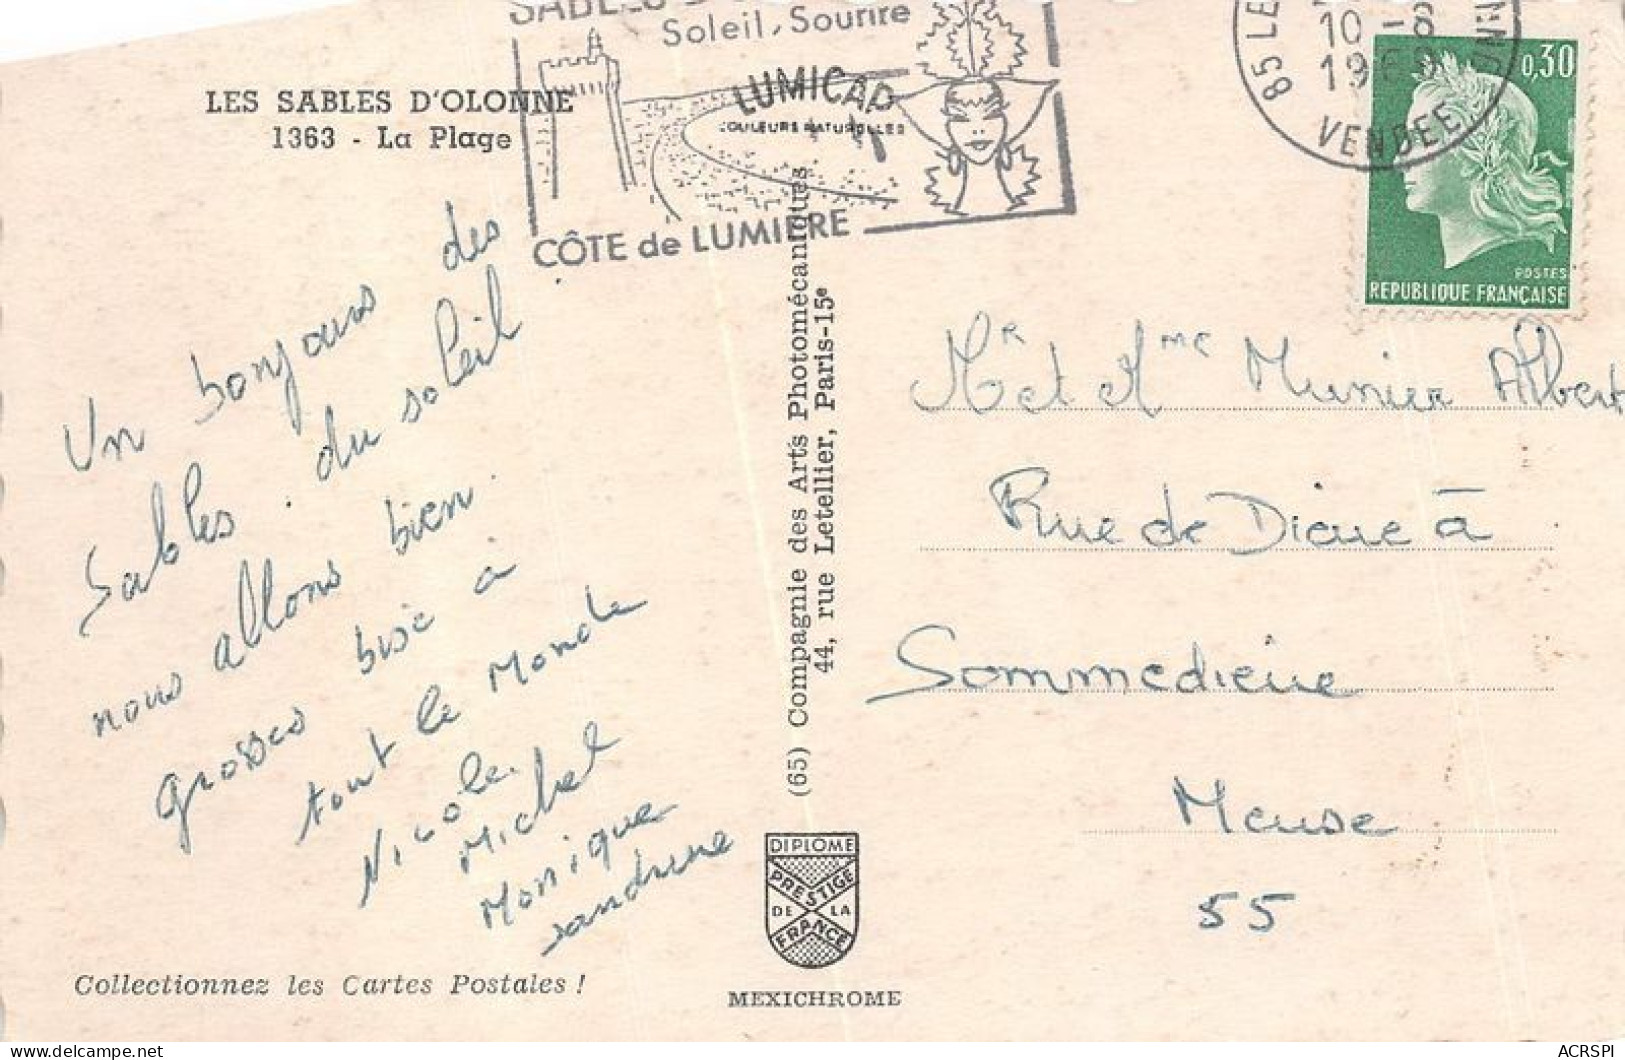 Soleil, Sourire
CÔTE de LUMIERE
85 LE
10 - 8
1969
VENDEE
0,30
POSTES
REPUBLIQUE FRANÇAISE
LES SABLES D'OLONNE
1363 - La Plage
LUMICAP
COULEURS NATURELLES
Un bonjour des
Sables. du soleil
nous allons bien.
grosses bise à
tout le Monde
Nicole.
Michel
Monique
Sandrine
(65) Compagnie des Arts Photomécaniques
44, rue Letellier, Paris-15e
Mr et Mme Munier Albert
Rue de Dieue à
Sommedieue
Meuse
55
DIPLOME
PRESTIGE
DE LA
FRANCE
Collectionnez les Cartes Postales !
MEXICHROME
ACRSPI